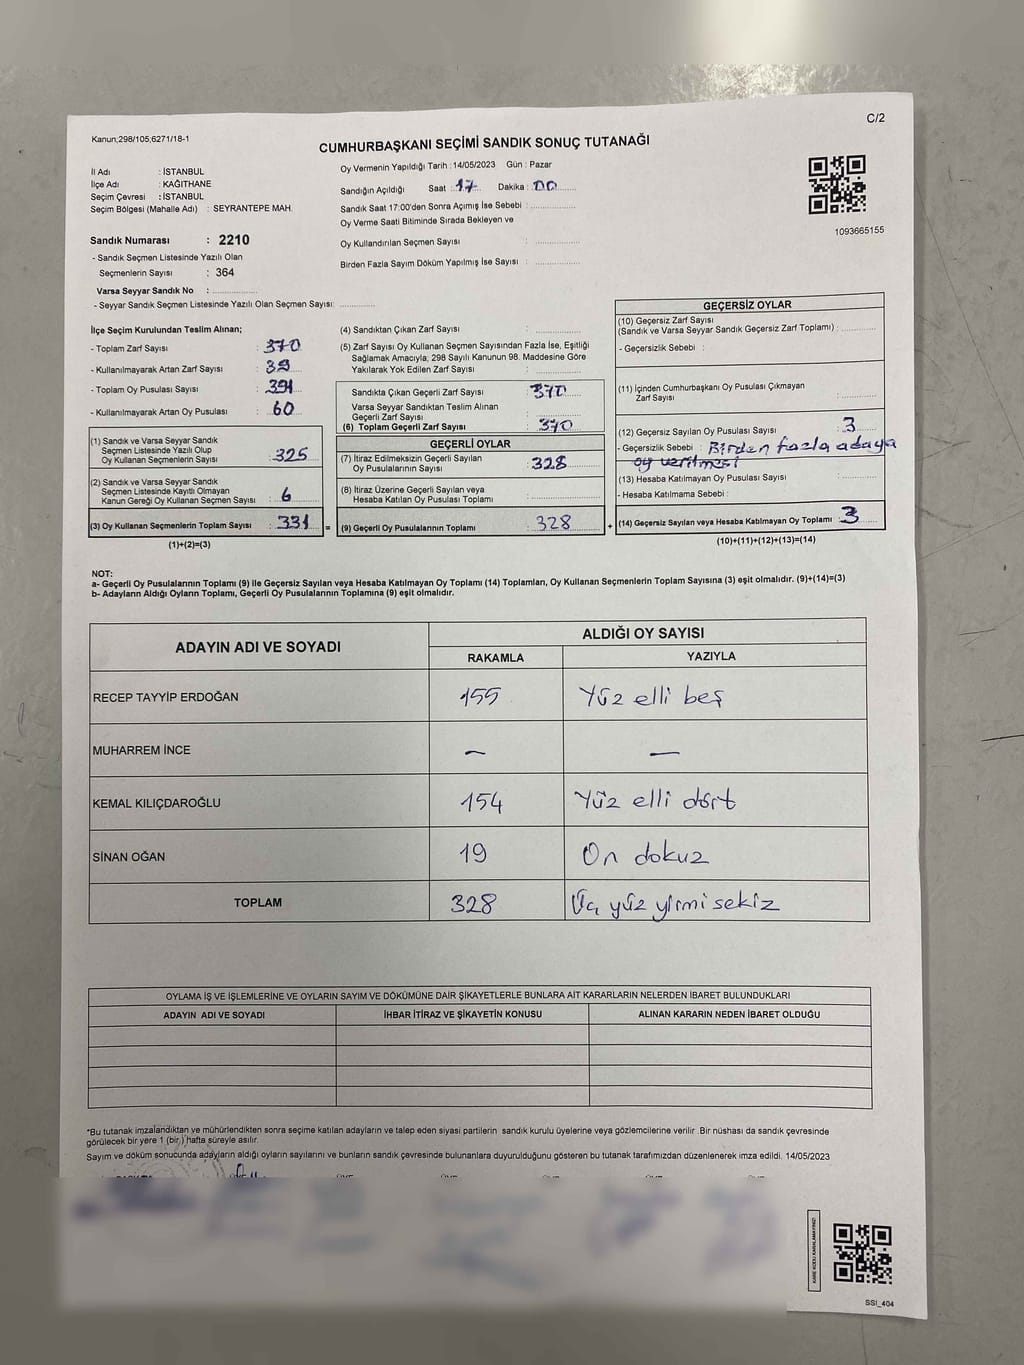 C/2
Kanun;298/105,6271/18-1
CUMHURBAŞKANI SEÇİMİ SANDIK SONUÇ TUTANAĞI
İl Adı : İSTANBUL
İlçe Adı : KAĞITHANE
Seçim Çevresi : İSTANBUL
Seçim Bölgesi (Mahalle Adı) : SEYRANTEPE MAH.
Oy Vermenin Yapıldığı Tarih : 14/05/2023 Gün : Pazar
Sandığın Açıldığı Saat : 17 Dakika : 00
Sandık Saat 17:00'den Sonra Açımış İse Sebebi :
Oy Verme Saati Bitiminde Sırada Bekleyen ve
Oy Kullandırılan Seçmen Sayısı :
Birden Fazla Sayım Döküm Yapılmış İse Sayısı :
1093665155
Sandık Numarası : 2210
- Sandık Seçmen Listesinde Yazılı Olan
Seçmenlerin Sayısı : 364
Varsa Seyyar Sandık No :
- Seyyar Sandık Seçmen Listesinde Yazılı Olan Seçmen Sayısı:
İlçe Seçim Kurulundan Teslim Alınan;
- Toplam Zarf Sayısı : 370
- Kullanılmayarak Artan Zarf Sayısı : 39
- Toplam Oy Pusulası Sayısı : 391
- Kullanılmayarak Artan Oy Pusulası : 60
(1) Sandık ve Varsa Seyyar Sandık
Seçmen Listesinde Yazılı Olup
Oy Kullanan Seçmenlerin Sayısı : 325
(2) Sandık ve Varsa Seyyar Sandık
Seçmen Listesinde Kayıtlı Olmayan
Kanun Gereği Oy Kullanan Seçmen Sayısı : 6
(3) Oy Kullanan Seçmenlerin Toplam Sayısı : 331 =
(1)+(2)=(3)
(4) Sandıktan Çıkan Zarf Sayısı :
(5) Zarf Sayısı Oy Kullanan Seçmen Sayısından Fazla İse, Eşitliği
Sağlamak Amacıyla; 298 Sayılı Kanunun 98. Maddesine Göre
Yakılarak Yok Edilen Zarf Sayısı :
Sandıkta Çıkan Geçerli Zarf Sayısı : 370
Varsa Seyyar Sandıktan Teslim Alınan
Geçerli Zarf Sayısı :
(6) Toplam Geçerli Zarf Sayısı : 370
GEÇERLİ OYLAR
(7) İtiraz Edilmeksizin Geçerli Sayılan
Oy Pusulalarının Sayısı : 328
(8) İtiraz Üzerine Geçerli Sayılan veya
Hesaba Katılan Oy Pusulası Toplamı :
(9) Geçerli Oy Pusulalarının Toplamı : 328 +
GEÇERSİZ OYLAR
(10) Geçersiz Zarf Sayısı
(Sandık ve Varsa Seyyar Sandık Geçersiz Zarf Toplamı) :
- Geçersizlik Sebebi :
(11) İçinden Cumhurbaşkanı Oy Pusulası Çıkmayan
Zarf Sayısı :
(12) Geçersiz Sayılan Oy Pusulası Sayısı : 3
- Geçersizlik Sebebi : Birden fazla adaya
oy verilmesi
(13) Hesaba Katılmayan Oy Pusulası Sayısı :
- Hesaba Katılmama Sebebi :
(14) Geçersiz Sayılan veya Hesaba Katılmayan Oy Toplamı : 3
(10)+(11)+(12)+(13)=(14)
NOT:
a- Geçerli Oy Pusulalarının Toplamı (9) ile Geçersiz Sayılan veya Hesaba Katılmayan Oy Toplamı (14) Toplamları, Oy Kullanan Seçmenlerin Toplam Sayısına (3) eşit olmalıdır. (9)+(14)=(3)
b- Adayların Aldığı Oyların Toplamı, Geçerli Oy Pusulalarının Toplamına (9) eşit olmalıdır.
ADAYIN ADI VE SOYADI ALDIĞI OY SAYISI
RAKAMLA YAZIYLA
RECEP TAYYİP ERDOĞAN 155 Yüz elli beş
MUHARREM İNCE — —
KEMAL KILIÇDAROĞLU 154 Yüz elli dört
SİNAN OĞAN 19 On dokuz
TOPLAM 328 Üç yüz yirmi sekiz
OYLAMA İŞ VE İŞLEMLERİNE VE OYLARIN SAYIM VE DÖKÜMÜNE DAİR ŞİKAYETLERLE BUNLARA AİT KARARLARIN NELERDEN İBARET BULUNDUKLARI
ADAYIN ADI VE SOYADI İHBAR İTİRAZ VE ŞİKAYETİN KONUSU ALINAN KARARIN NEDEN İBARET OLDUĞU
*Bu tutanak imzalandıktan ve mühürlendikten sonra seçime katılan adayların ve talep eden siyasi partilerin sandık kurulu üyelerine veya gözlemcilerine verilir. Bir nüshası da sandık çevresinde
görülecek bir yere 1 (bir) hafta süreyle asılır.
Sayım ve döküm sonucunda adayların aldığı oyların sayılarını ve bunların sandık çevresinde bulunanlara duyurulduğunu gösteren bu tutanak tarafımızdan düzenlenerek imza edildi. 14/05/2023
SSI_404